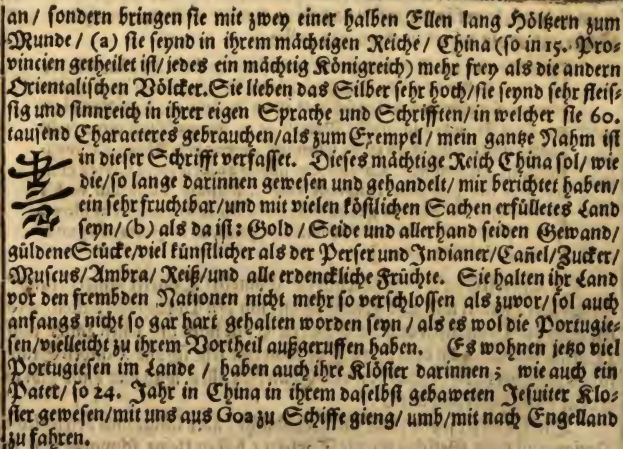 an / sondern bringen sie mit zwey einer halben Ellen lang Höltzern zum
Munde / (a) sie seynd in ihrem mächtigen Reiche / China (so in 15. Pro-
vincien getheilet ist / jedes ein mächtig Königreich) mehr frey als die andern
Orientalischen Völcker. Sie lieben das Silber sehr hoch / sie seynd sehr fleis-
sig und sinnreich in ihrer eigen Sprache und Schrifften / in welcher sie 60.
tausend Characteres gebrauchen / als zum Exempel / mein gantze Nahm ist
in dieser Schrifft verfasset. Dieses mächtige Reich China sol / wie
die / so lange darinnen gewesen und gehandelt / mir berichtet haben /
ein sehr fruchtbar / und mit vielen köstlichen Sachen erfülletes Land
seyn / (b) als da ist: Gold / Seide und allerhand seiden Gewand /
güldene Stücke / viel künstlicher als der Perser und Indianer / Cañel / Zucker /
Muscus / Ambra / Reiß / und alle erdenckliche Früchte. Sie halten ihr Land
vor den frembden Nationen nicht mehr so verschlossen als zuvor / sol auch
anfangs nicht so gar hart gehalten worden seyn / als es wol die Portugie-
sen / vielleicht zu ihrem Vortheil außgeruffen haben. Es wohnen jetzo viel
Portugiesen im Lande / haben auch ihre Klöster darinnen; wie auch ein
Pater / so 24. Jahr in China in ihrem daselbst gebaweten Jesuiter Klo-
ster gewesen / mit uns aus Goa zu Schiffe gieng / umb / mit nach Engelland
zu fahren.